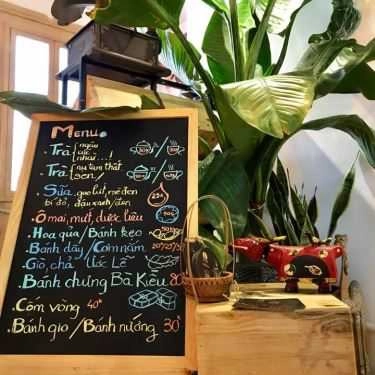 Menu
.Trà { ngâu cúc nhài...!
.Trà { nụ tam thất sen
.Sữa gạo lứt, mè đen
bí đỏ, đậu xanh/đen
.Ô mai, mứt, dược liệu
.Hoa quả/Bánh kẹo
.Bánh dày/Cơm nắm
.Giò, chả Ước Lễ
.Bánh chưng Bà Kiều
.Cốm vòng 40k
.Bánh gio/Bánh nướng 30k